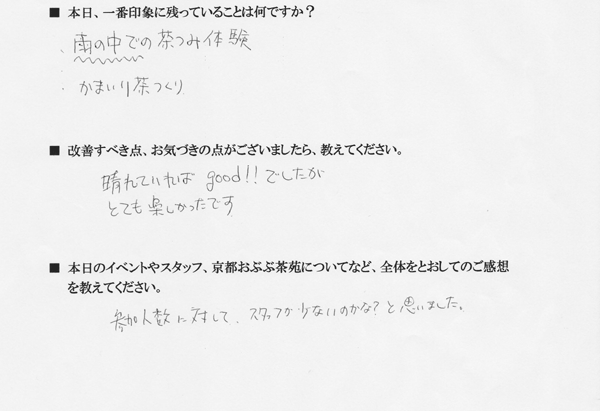 ■ 本日、一番印象に残っていることは何ですか？
・雨の中での茶つみ体験
・かまいり茶つくり
■ 改善すべき点、お気づきの点がございましたら、教えてください。
晴れていれば good!! でしたが
とても楽しかったです
■ 本日のイベントやスタッフ、京都おぶぶ茶苑についてなど、全体をとおしてのご感想
を教えてください。
参加人数に対して、スタッフが少ないのかな？と思いました。